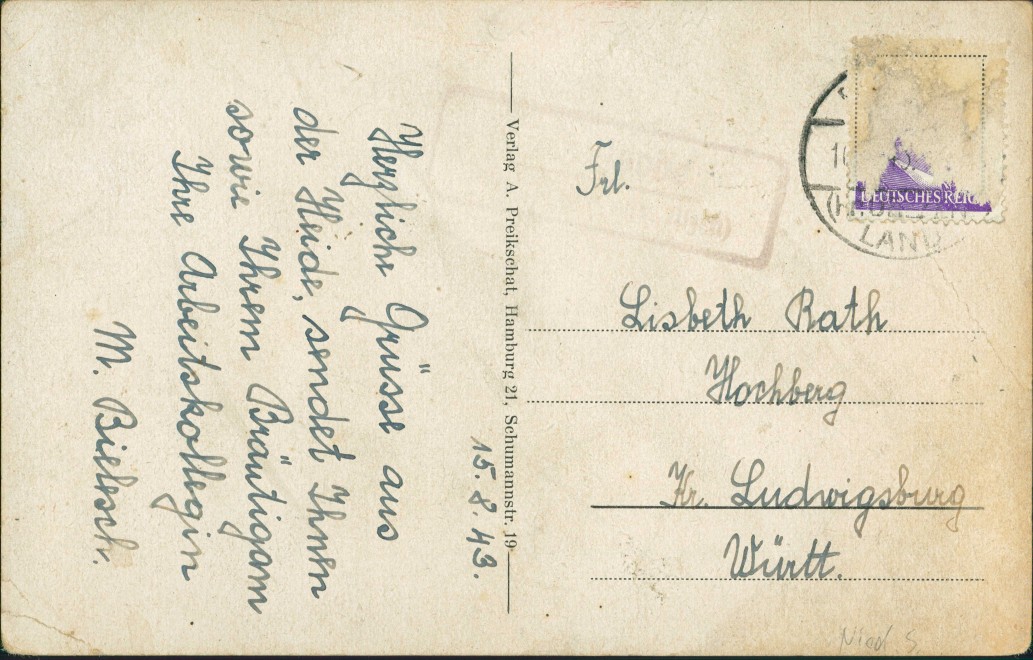 15. 8. 43.
Herzliche Grüsse aus
der Heide, sendet Ihnen
sowie Ihrem Bräutigam
Ihre Arbeitskollegin
M. Bielesch.
Verlag A. Preikschat, Hamburg 21, Schumannstr. 19
DEUTSCHES REICH
Frl.
Lisbeth Rath
Hochberg
Kr. Ludwigsburg
Württ.